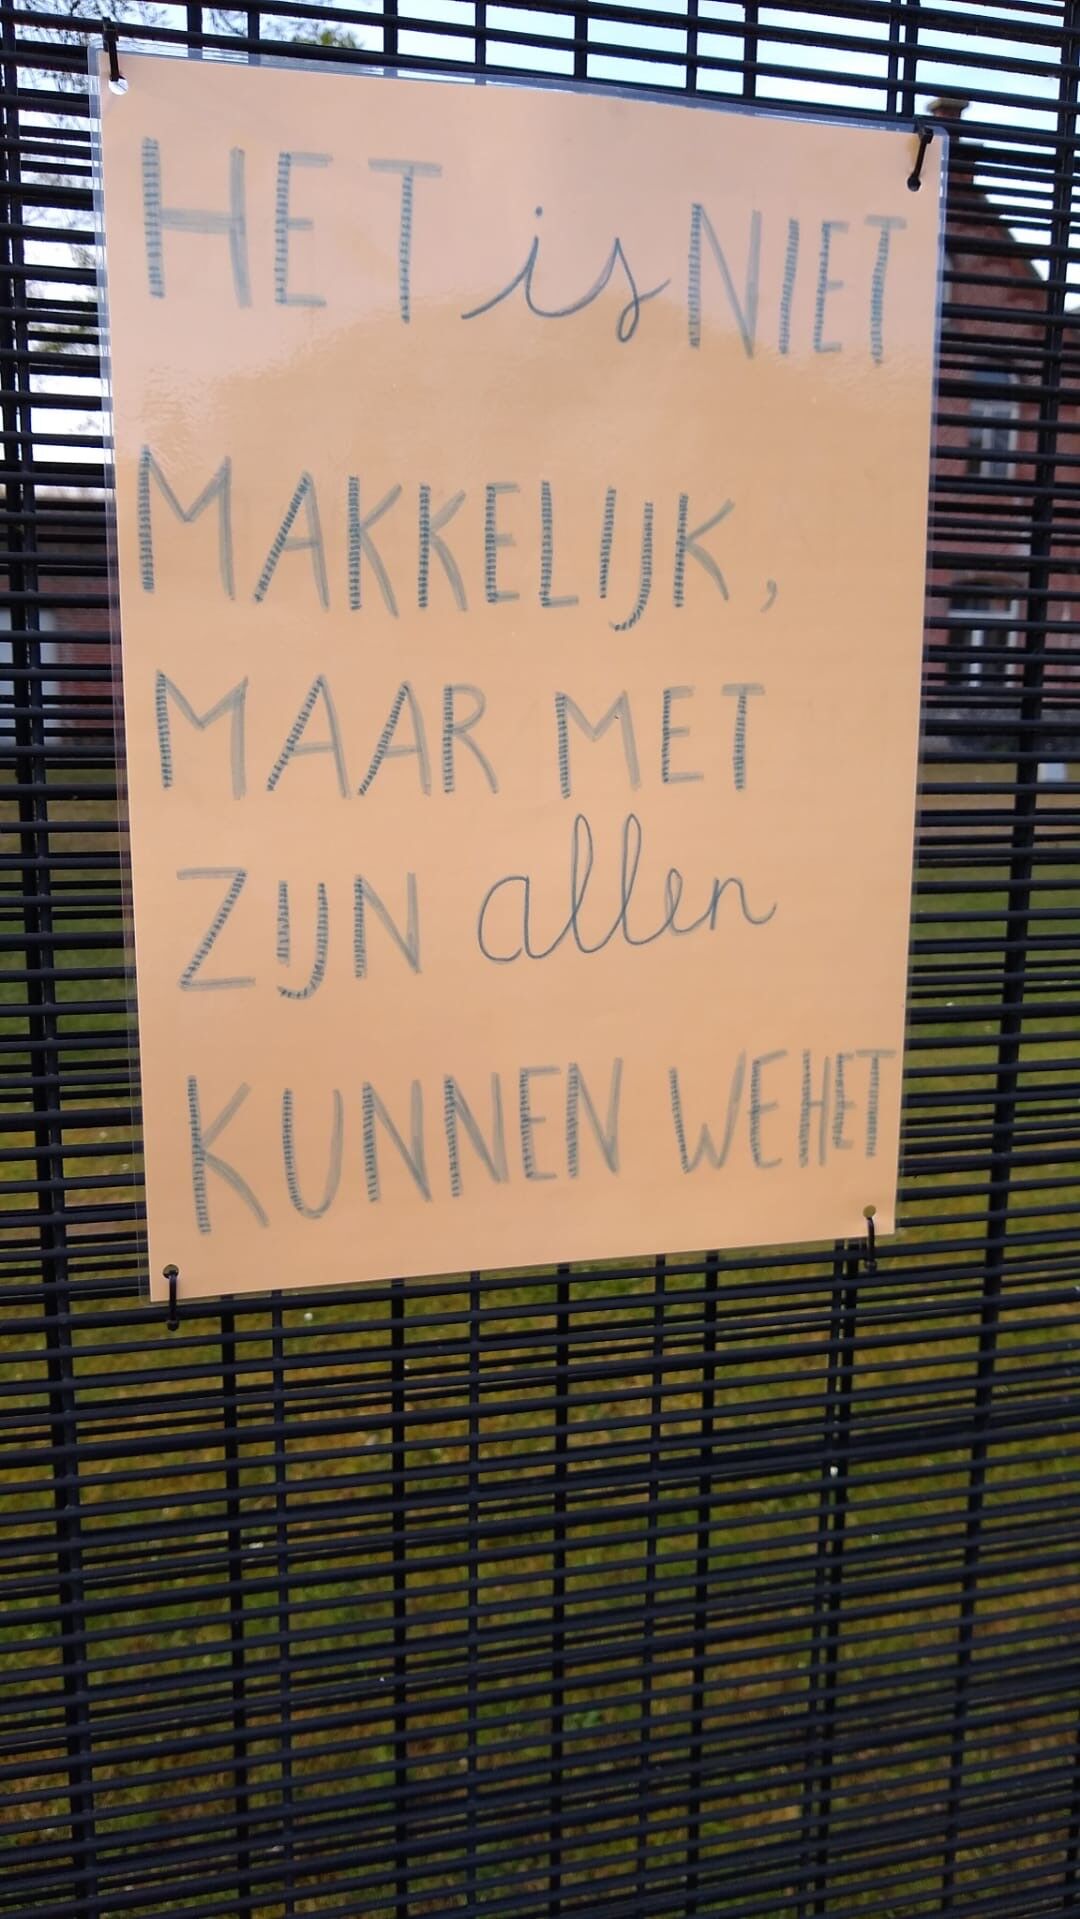 HET is NIET
MAKKELIJK,
MAAR MET
ZIJN allen
KUNNEN WEHET